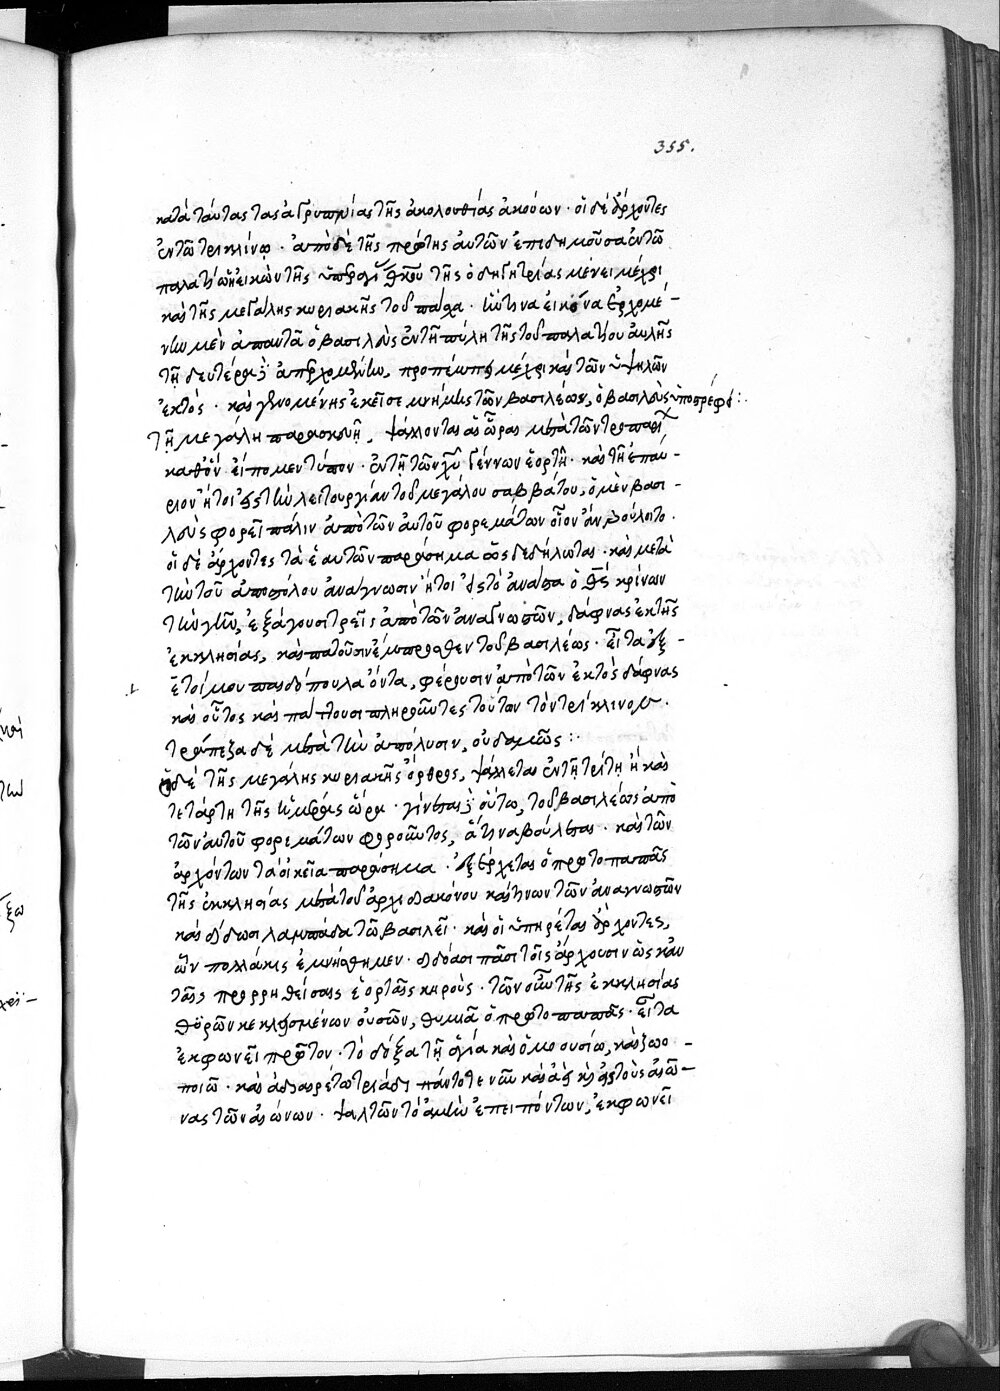 355.
κατὰ ταύτας τὰς ἀγρυπνίας τῆς ἀκολουθίας ἀκούων· οἱ δὲ ἄρχοντες
ἐν τῶ τρικλίνῳ· ἀπὸ δὲ τῆς πέμπτης αὐτῶν ἐπιδημοῦσα ἐν τῶ
παλατίω ἡ εἰκὼν τῆς ὑπεραγί θκου τῆς ὁδηγητρίας μένει μέχρι
καὶ τῆς μεγάλης κυριακῆς τοῦ πάσχα· ἣν τινα εἰκόνα ἐρχομέ-
νην μὲν ἀπαντᾶ ὁ βασιλεὺς ἐν τῆ πύλη τῆς τοῦ παλατίου αὐλῆς
τῇ δευτέρᾳ δὲ ἀπερχομένην, προπέμπει μέχρι καὶ τῶν ὑψηλῶν
ἐκτὸς· καὶ γενομένης ἐκεῖσε μνήμης τῶν βασιλέων, ὁ βασιλεὺς ὑποστρέφει:·
τῇ μεγάλη παρασκευῆ, ψάλλονται αἱ ὧραι μετὰ τῶν τροπαρί
καθ' ὃν εἴπομεν τύπον· ἐν τῇ τῶν χυ γέννων ἑορτῆ· καὶ τῆ ἐπαύ-
ριον ἤτοι εἰς τὴν λειτουργίαν τοῦ μεγάλου σαββάτου, ὁ μὲν βασι-
λεὺς φορεῖ πάλιν ἀπὸ τῶν αὐτοῦ φορεμάτων οἷον ἂν βούλοιτο·
οἱ δὲ ἄρχοντες τὰ ἑαυτῶν παράσημα ὡς δεδήλωται· καὶ μετὰ
τὴν τοῦ ἀποστόλου ἀνάγνωσιν ἤτοι εἰς τὸ ἀνάστα ὁ θς κρίνων
τὴν γῆν, ἐξάγουσι τρεῖς ἀπὸ τῶν ἀναγνωστῶν, δάφνας ἐκ τῆς
ἐκκλησίας, καὶ πατοῦσιν ἔμπροσθεν τοῦ βασιλέως· εἶτα ἐξ-
ἑτοίμου παιδόπουλα ὄντα, φέρουσιν ἀπὸ τῶν ἐκτὸς δάφνας
καὶ οὗτοι καὶ πάττουσι πληροῦντες τοῦτον τὸν τρίκλινον·
τράπεζα δὲ μετὰ τὴν ἀπόλυσιν, οὐδαμῶς :·
ὁ δὲ τῆς μεγάλης κυριακῆς ὄρθρος, ψάλλεται ἐν τῆ τρίτη ἢ καὶ
τετάρτη τῆς ἡμέρας ὥρα· γίνεται δὲ οὕτω, τοῦ βασιλέως ἀπὸ
τῶν αὐτοῦ φορεμάτων φοροῦντος, ἅτινα βούλεται· καὶ τῶν
ἀρχόντων τὰ οἰκεῖα παράσημα· ἐξέρχεται ὁ πρωτοπαπᾶς
τῆς ἐκκλησίας μετὰ τοῦ ἀρχιδιακόνου καί τινων τῶν ἀναγνωστῶν
καὶ δίδωσι λαμπάδα τῶ βασιλεῖ· καὶ οἱ ὑπηρέται ἄρχοντες,
ὧν πολλάκις ἐμνήσθημεν· διδόασι πᾶσι τοῖς ἄρχουσιν ὡς κἀν
ταῖς προρρηθείσαις ἑορταῖς κηροὺς· τῶν οὖν τῆς ἐκκλησίας
θυρῶν κεκλεισμένων οὐσῶν, θυμιᾶ ὁ πρωτοπαπᾶς· εἶτα
ἐκφωνεῖ πρῶτον· τὸ δόξα τῇ ἁγία καὶ ὁμοουσίω, καὶ ζωο-
ποιῶ· καὶ ἀδιαιρέτω τριάδι πάντοτε νῦν καὶ ἀεὶ καὶ εἰς τοὺς αἰῶ-
νας τῶν αἰώνων· ψαλτῶν τὸ ἀμὴν ἐπειπόντων, ἐκφωνεῖ